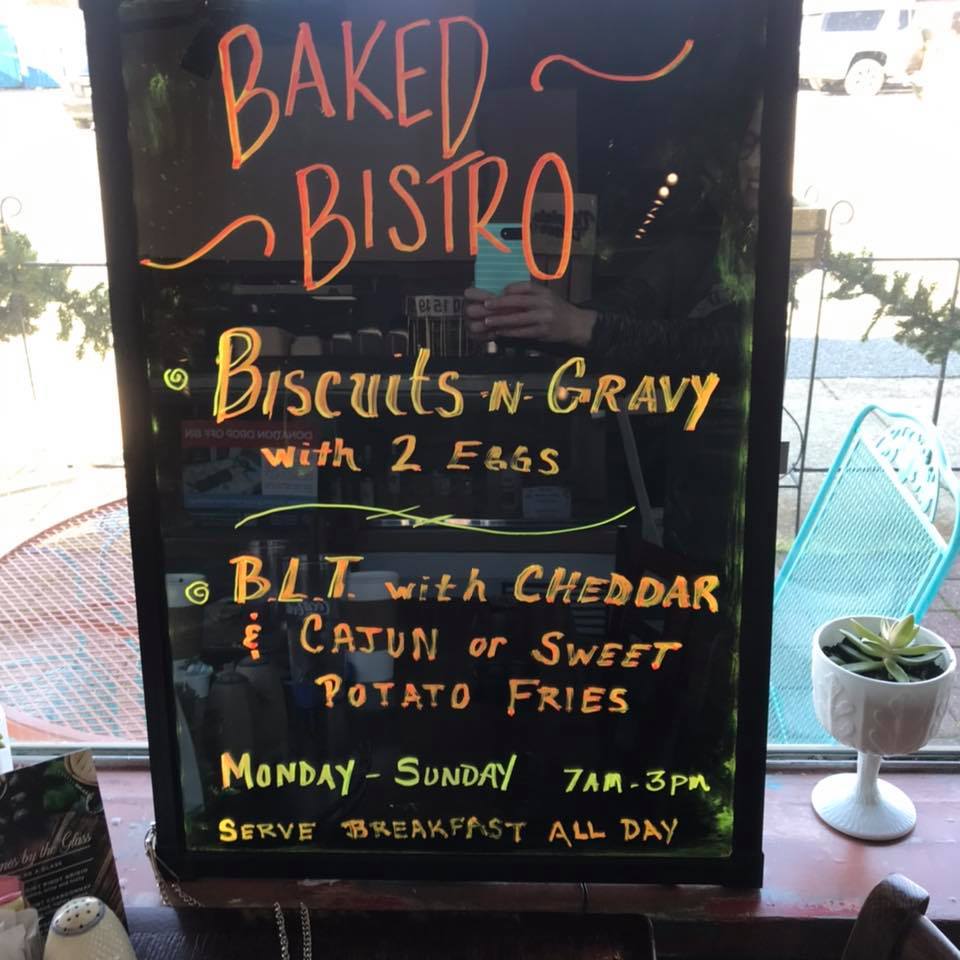 BAKED
BISTRO
BISCUITS -N- GRAVY
with 2 EGGS
B.L.T. with CHEDDAR
& CAJUN or SWEET
POTATO FRIES
MONDAY - SUNDAY 7AM-3PM
SERVE BREAKFAST ALL DAY
DONATION DROP OFF BIN
nes by the Glass